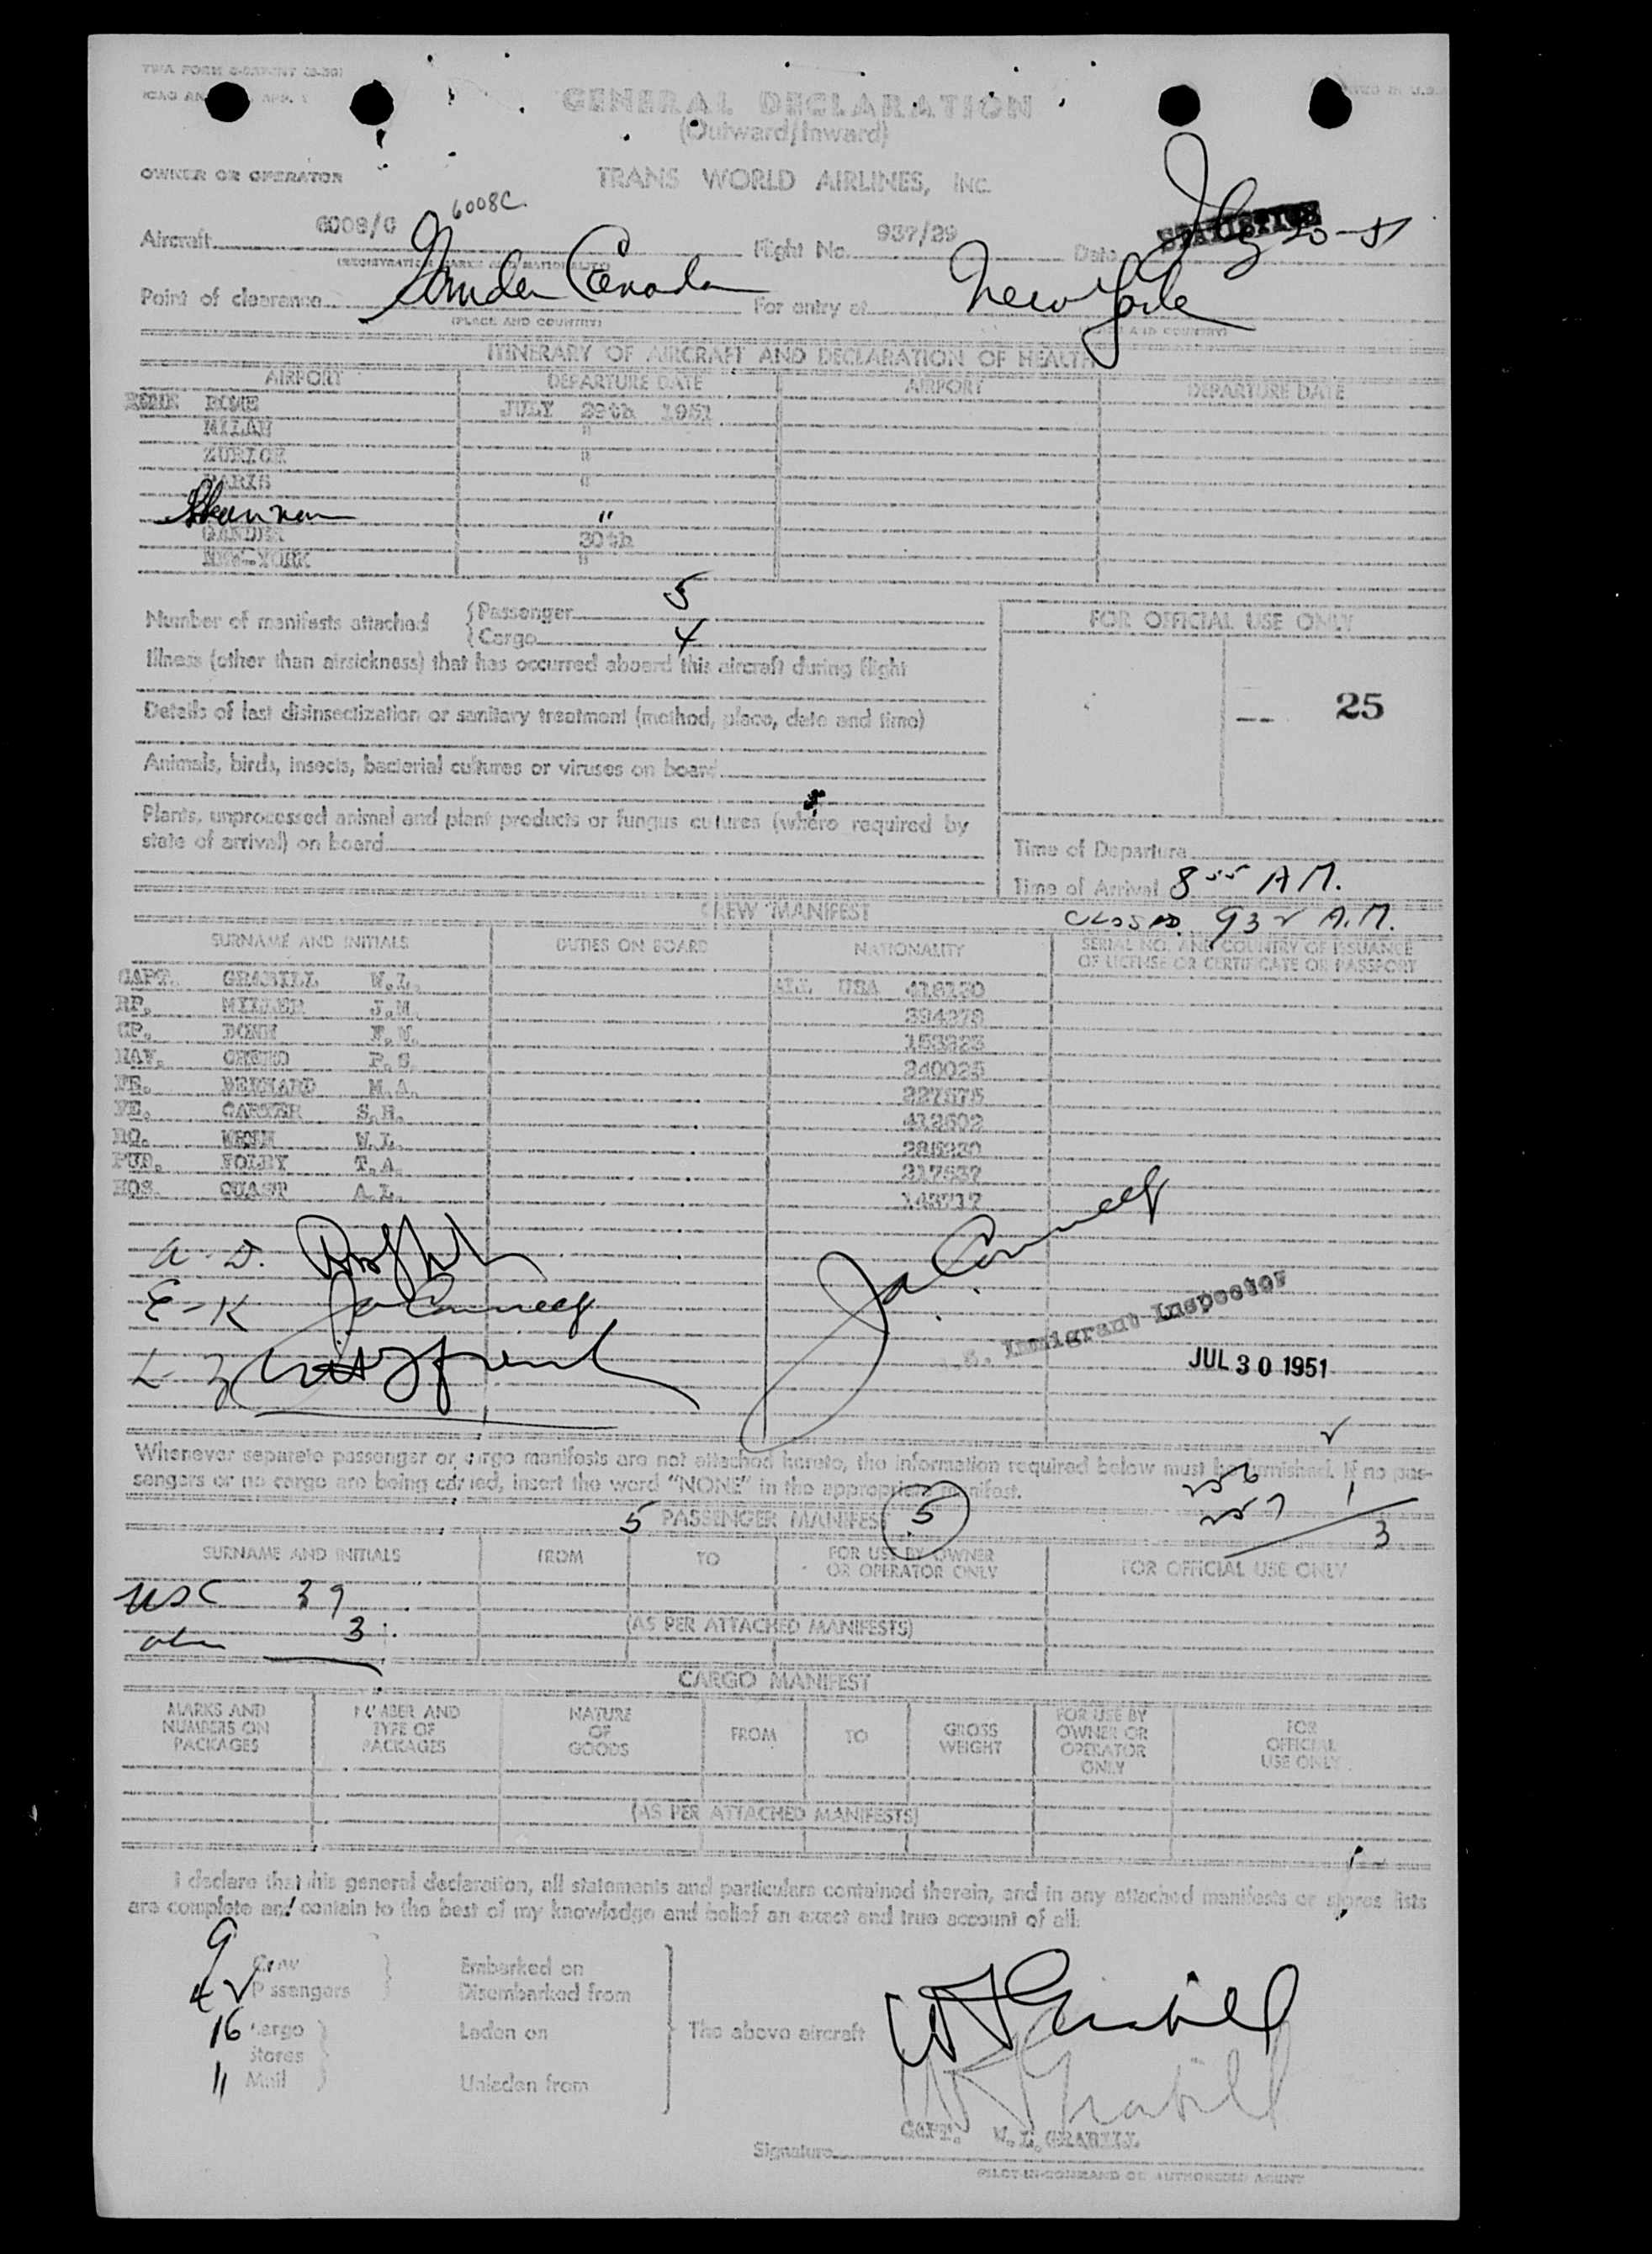 GENERAL DECLARATION
(Outward/Inward)
OWNER OR OPERATOR TRANS WORLD AIRLINES, INC.
6008C.
Aircraft 6008/C Flight No. 937/29 Date
STATISTICS
Point of clearance Canada For entry at New York
(PLACE AND COUNTRY)
ITINERARY OF AIRCRAFT AND DECLARATION OF HEALTH
AIRPORT DEPARTURE DATE AIRPORT DEPARTURE DATE
ROME JULY 29th 1951
MILAN "
ZURICH "
PARIS "
Shannon "
GANDER 30th
NEW-YORK "
Number of manifests attached { Passenger 5
{ Cargo 4
FOR OFFICIAL USE ONLY
Illness (other than airsickness) that has occurred aboard this aircraft during flight
-- 25
Details of last disinsectization or sanitary treatment (method, place, date and time)
Animals, birds, insects, bacterial cultures or viruses on board
Plants, unprocessed animal and plant products or fungus cultures (where required by
state of arrival) on board
Time of Departure
Time of Arrival 8 55 A.M.
CLOSED. 932 A.M.
CREW MANIFEST
SURNAME AND INITIALS DUTIES ON BOARD NATIONALITY SERIAL NO. AND COUNTRY OF ISSUANCE
OF LICENSE OR CERTIFICATE OR PASSPORT
CAPT. GRABILL W.L. ALL USA
MILLER J.M.
NAV. P.S.
FE. M.A.
FE. CARTER S.H.
W.L.
PUR. FOLEY T.A. 217537
HOS. QUAST A.L.
A - D.
E - K
L - Z
Immigrant Inspector
JUL 30 1951
Whenever separate passenger or cargo manifests are not attached hereto, the information required below must be furnished. If no pas-
sengers or no cargo are being carried, insert the word "NONE" in the appropriate manifest.
256
257 1
3
5 PASSENGER MANIFEST 5
SURNAME AND INITIALS FROM TO FOR USE BY OWNER
OR OPERATOR ONLY FOR OFFICIAL USE ONLY
USC 39
3
(AS PER ATTACHED MANIFESTS)
CARGO MANIFEST
MARKS AND
NUMBERS ON
PACKAGES
NUMBER AND
TYPE OF
PACKAGES
NATURE
OF
GOODS
FROM
TO
GROSS
WEIGHT
FOR USE BY
OWNER OR
OPERATOR
ONLY
FOR
OFFICIAL
USE ONLY
(AS PER ATTACHED MANIFESTS)
I declare that this general declaration, all statements and particulars contained therein, and in any attached manifests or stores lists
are complete and contain to the best of my knowledge and belief an exact and true account of all:
9 Crew Embarked on
42 Passengers Disembarked from
16 Cargo Laden on The above aircraft
Stores
11 Mail Unladen from
W L Grabill
W L Grabill
CAPT. W.L. GRABILL
Signature
PILOT-IN-COMMAND OR AUTHORIZED AGENT